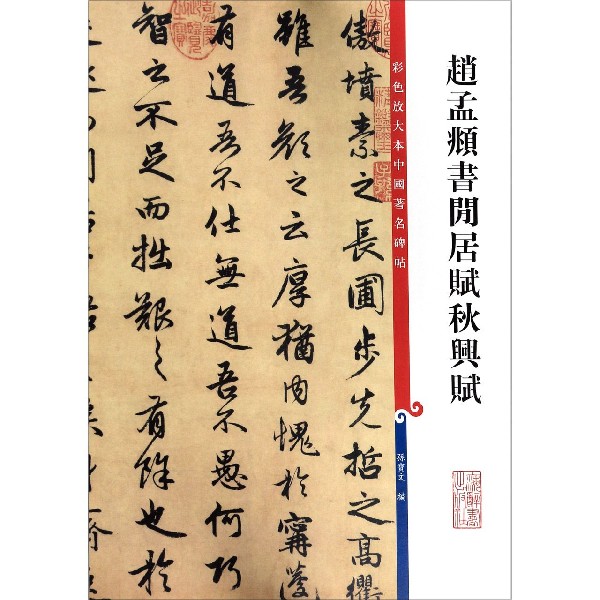 趙孟頫書閒居賦秋興賦
彩色放大本中國著名碑帖
孫寶文 編
傲墳素之長圃步先哲之高衢
雖吾顏之云厚猶內愧於甯蘧
有道吾不仕無道吾不愚何巧
智之不足而拙艱之有餘也於